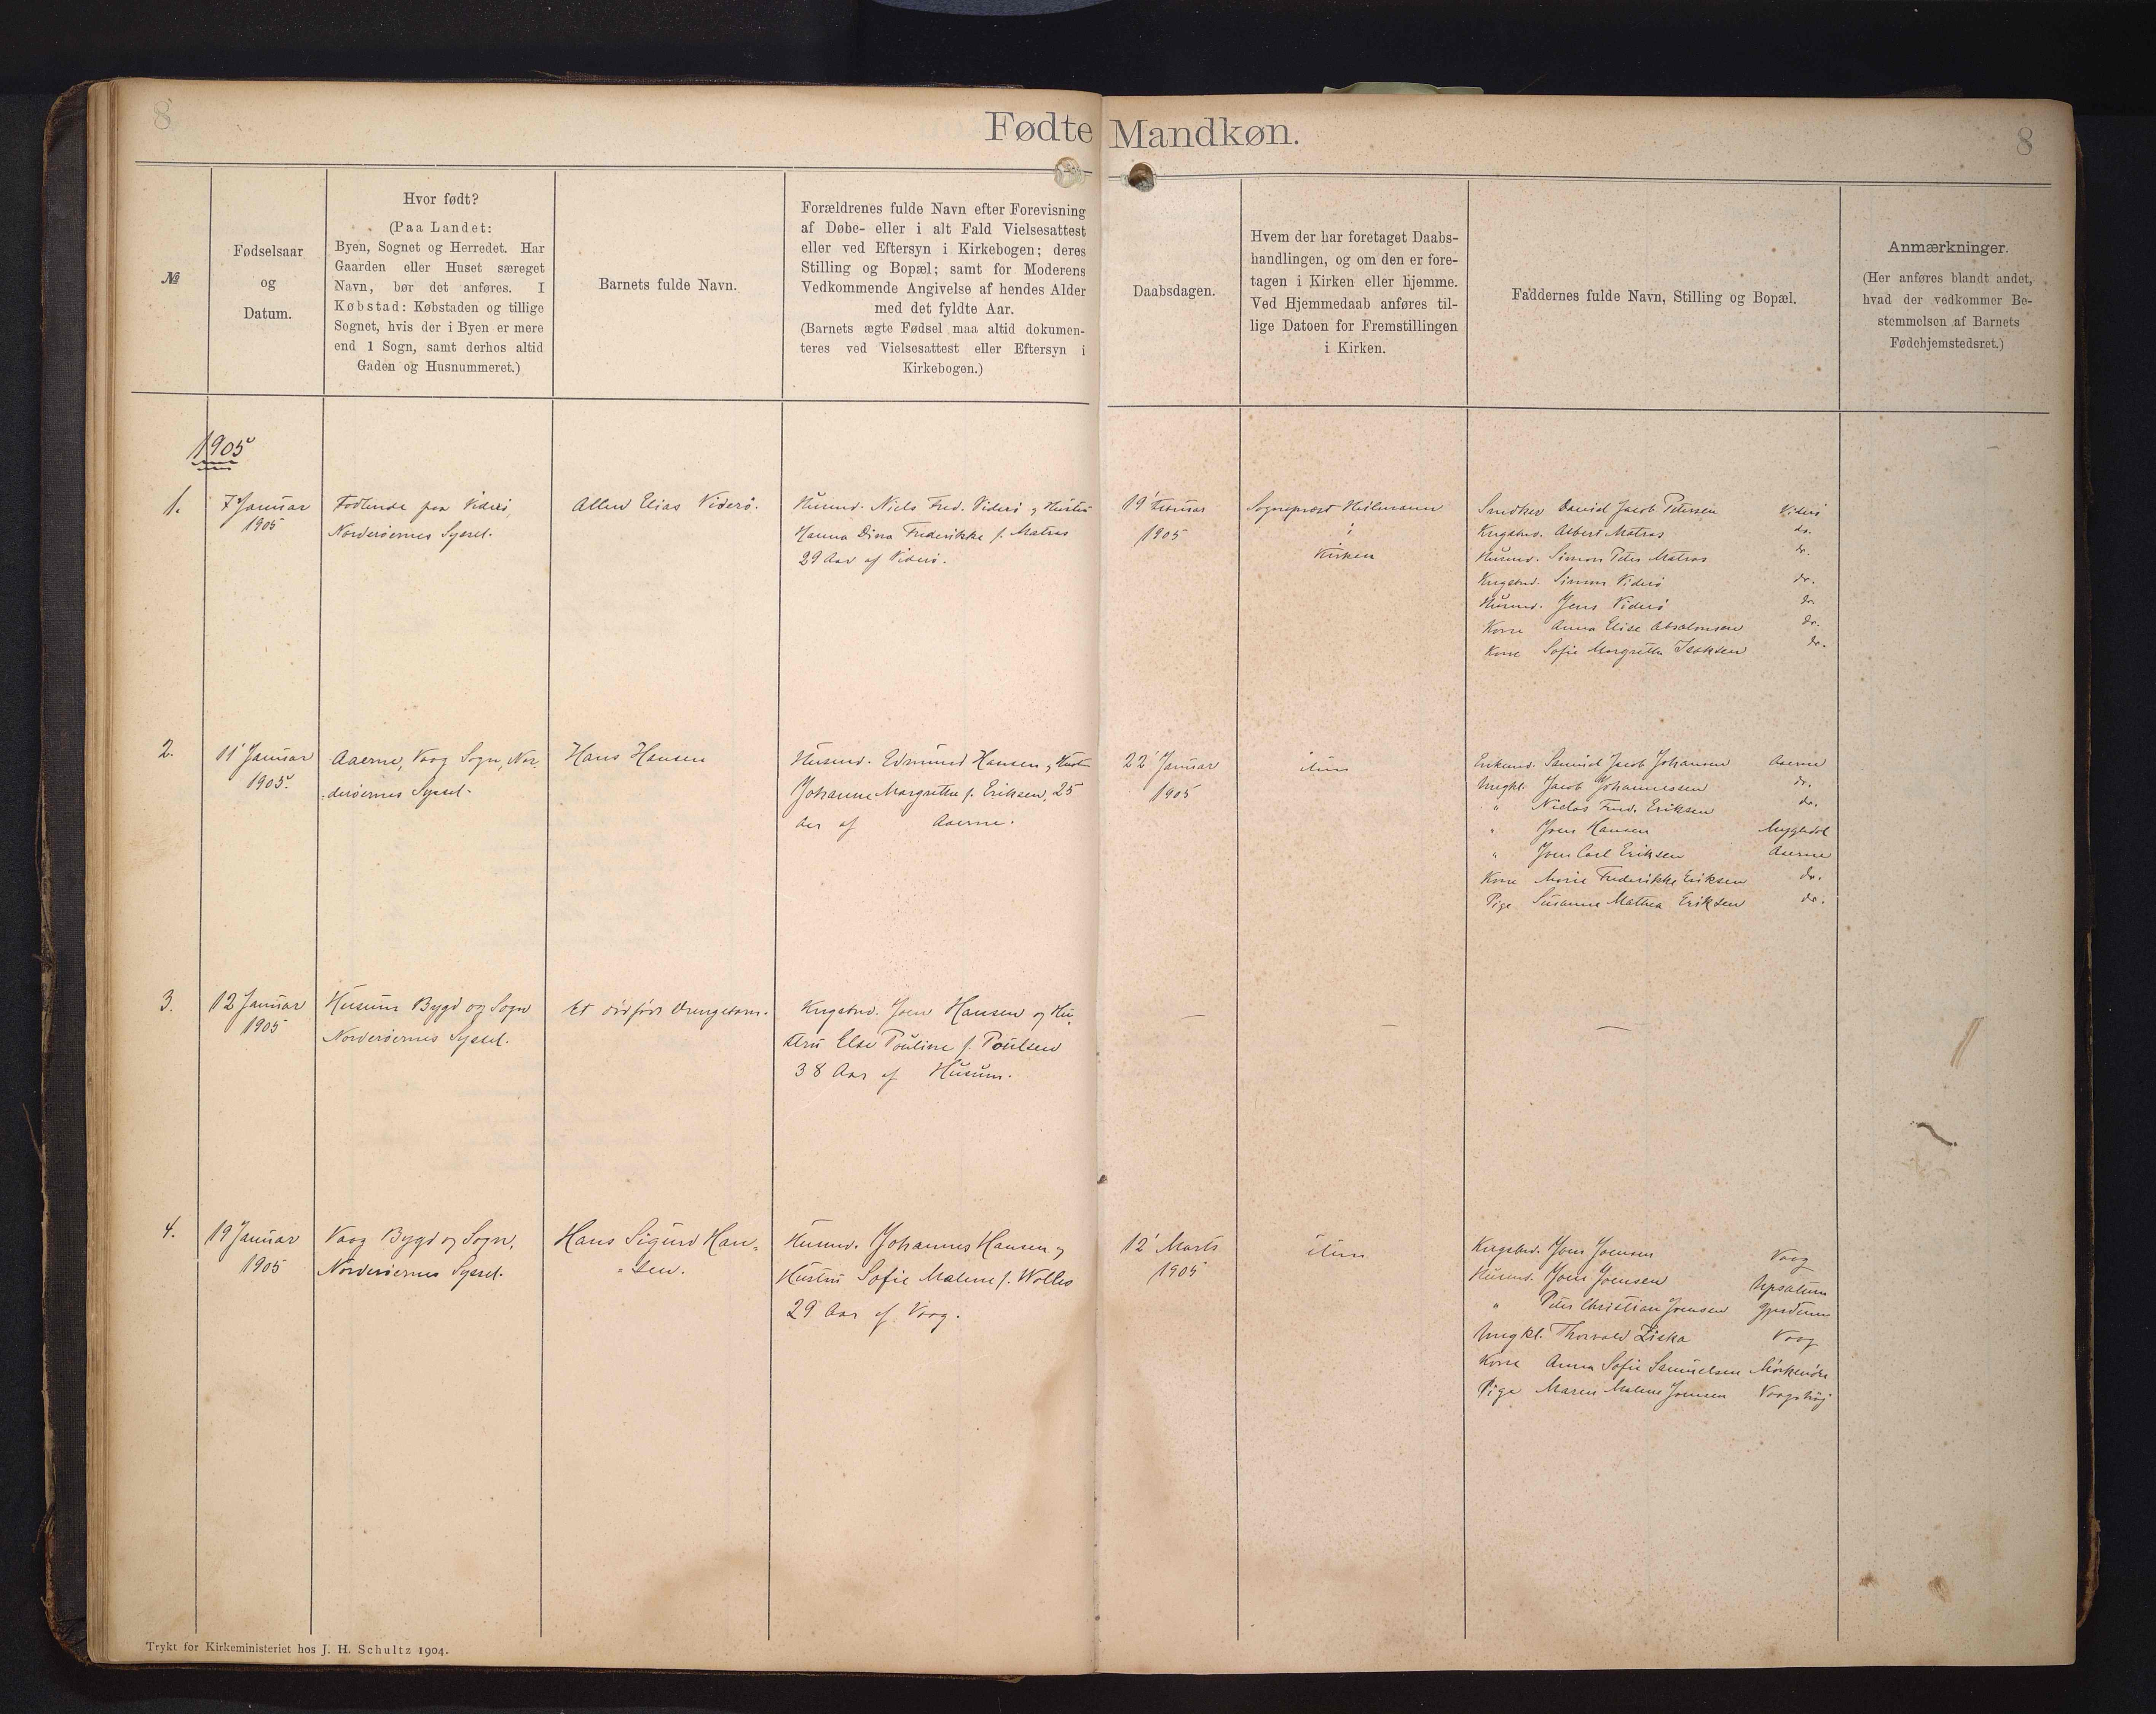 8
Fødte Mandkøn.
8
№
Fødselsaar
og
Datum.
Hvor født?
(Paa Landet:
Byen, Sognet og Herredet. Har
Gaarden eller Huset særeget
Navn, bør det anføres. I
Købstad: Købstaden og tillige
Sognet, hvis der i Byen er mere
end 1 Sogn, samt derhos altid
Gaden og Husnummeret.)
Barnets fulde Navn.
Forældrenes fulde Navn efter Forevisning
af Døbe- eller i alt Fald Vielsesattest
eller ved Eftersyn i Kirkebogen; deres
Stilling og Bopæl; samt for Moderens
Vedkommende Angivelse af hendes Alder
med det fyldte Aar.
(Barnets ægte Fødsel maa altid dokumen-
teres ved Vielsesattest eller Eftersyn i
Kirkebogen.)
Daabsdagen.
Hvem der har foretaget Daabs-
handlingen, og om den er fore-
tagen i Kirken eller hjemme.
Ved Hjemmedaab anføres til-
lige Datoen for Fremstillingen
i Kirken.
Faddernes fulde Navn, Stilling og Bopæl.
Anmærkninger.
(Her anføres blandt andet,
hvad der vedkommer Be-
stemmelsen af Barnets
Fødehjemstedsret.)
1905
1.
7 Januar
1905
paa Viderø,
Norderøernes Syssel.
Elias Viderø.
Husmd. Niels Fred. Viderø og Hustru
Hanna Dina Frederikke f. Matras
29 Aar af Viderø.
19' Februar
1905
Sognepræst Heilmann
i
Kirken
David Jacob Petersen Viderø
Kngsbnd. Albert Matras do.
Husmd. Simon Peter Matras do.
Kngsbnd. Simon Viderø do.
Husmd. Jens Viderø do.
Kone Anna Elise Absalonsen do.
Kone Sofie Margrethe Isaksen do.
2.
11' Januar
1905.
Aaerne, Vaag Sogn, Nor-
derøernes Syssel.
Hans Hansen
Husmd. Edmund Hansen og Hustru
Johanne Margrethe f. Eriksen, 25
Aar af Aaerne.
22' Januar
1905
item
Jacob Johansen Aaerne
Ungkl. Jacob Johannessen do.
" Niclas Fred. Eriksen do.
" Joen Hansen Myggledal
" Joen Carl Eriksen Aaerne
Kone Marie Frederikke Eriksen do.
Pige Susanne Mathea Eriksen do.
3.
12 Januar
1905
Husum Bygd og Sogn
Norderøernes Syssel.
Et dødfødt Drengebarn.
Kngsbnd. Joen Hansen og Hu-
stru Else Pouline f. Poulsen
38 Aar af Husum.
–
–
–
4.
19 Januar
1905
Vaag Bygd og Sogn,
Norderøernes Syssel.
Hans Sigurd Han-
-sen.
Husmd. Johannes Hansen og
Hustru Sofie Malene f. Wolles
29 Aar af Vaag.
12' Marts
1905
item
Kngsbnd. Joen Joensen Vaag
Husmd. Joen Joensen Upsatum
" Peter Christian Joensen
Ungkl. Thorvald Ziska Vaag
Kone Anna Sofie Samuelsen
Pige Maren Malene Joensen Vaagshøj
Trykt for Kirkeministeriet hos J. H. Schultz 1904.